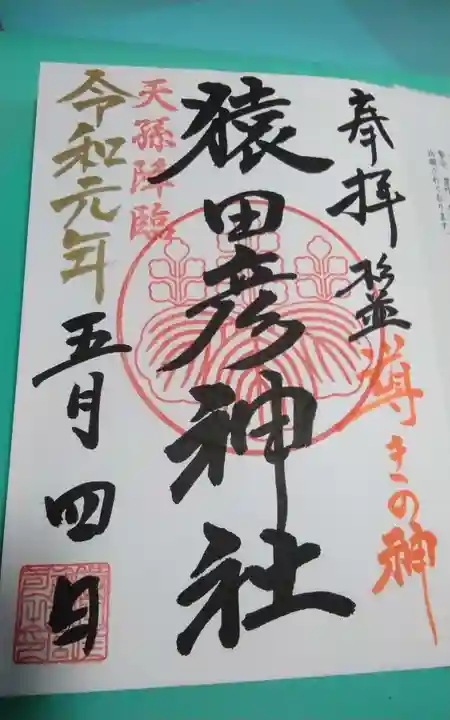 奉拝 杉並
導きの神
猿田彦神社
天孫降臨
令和元年
五月四日